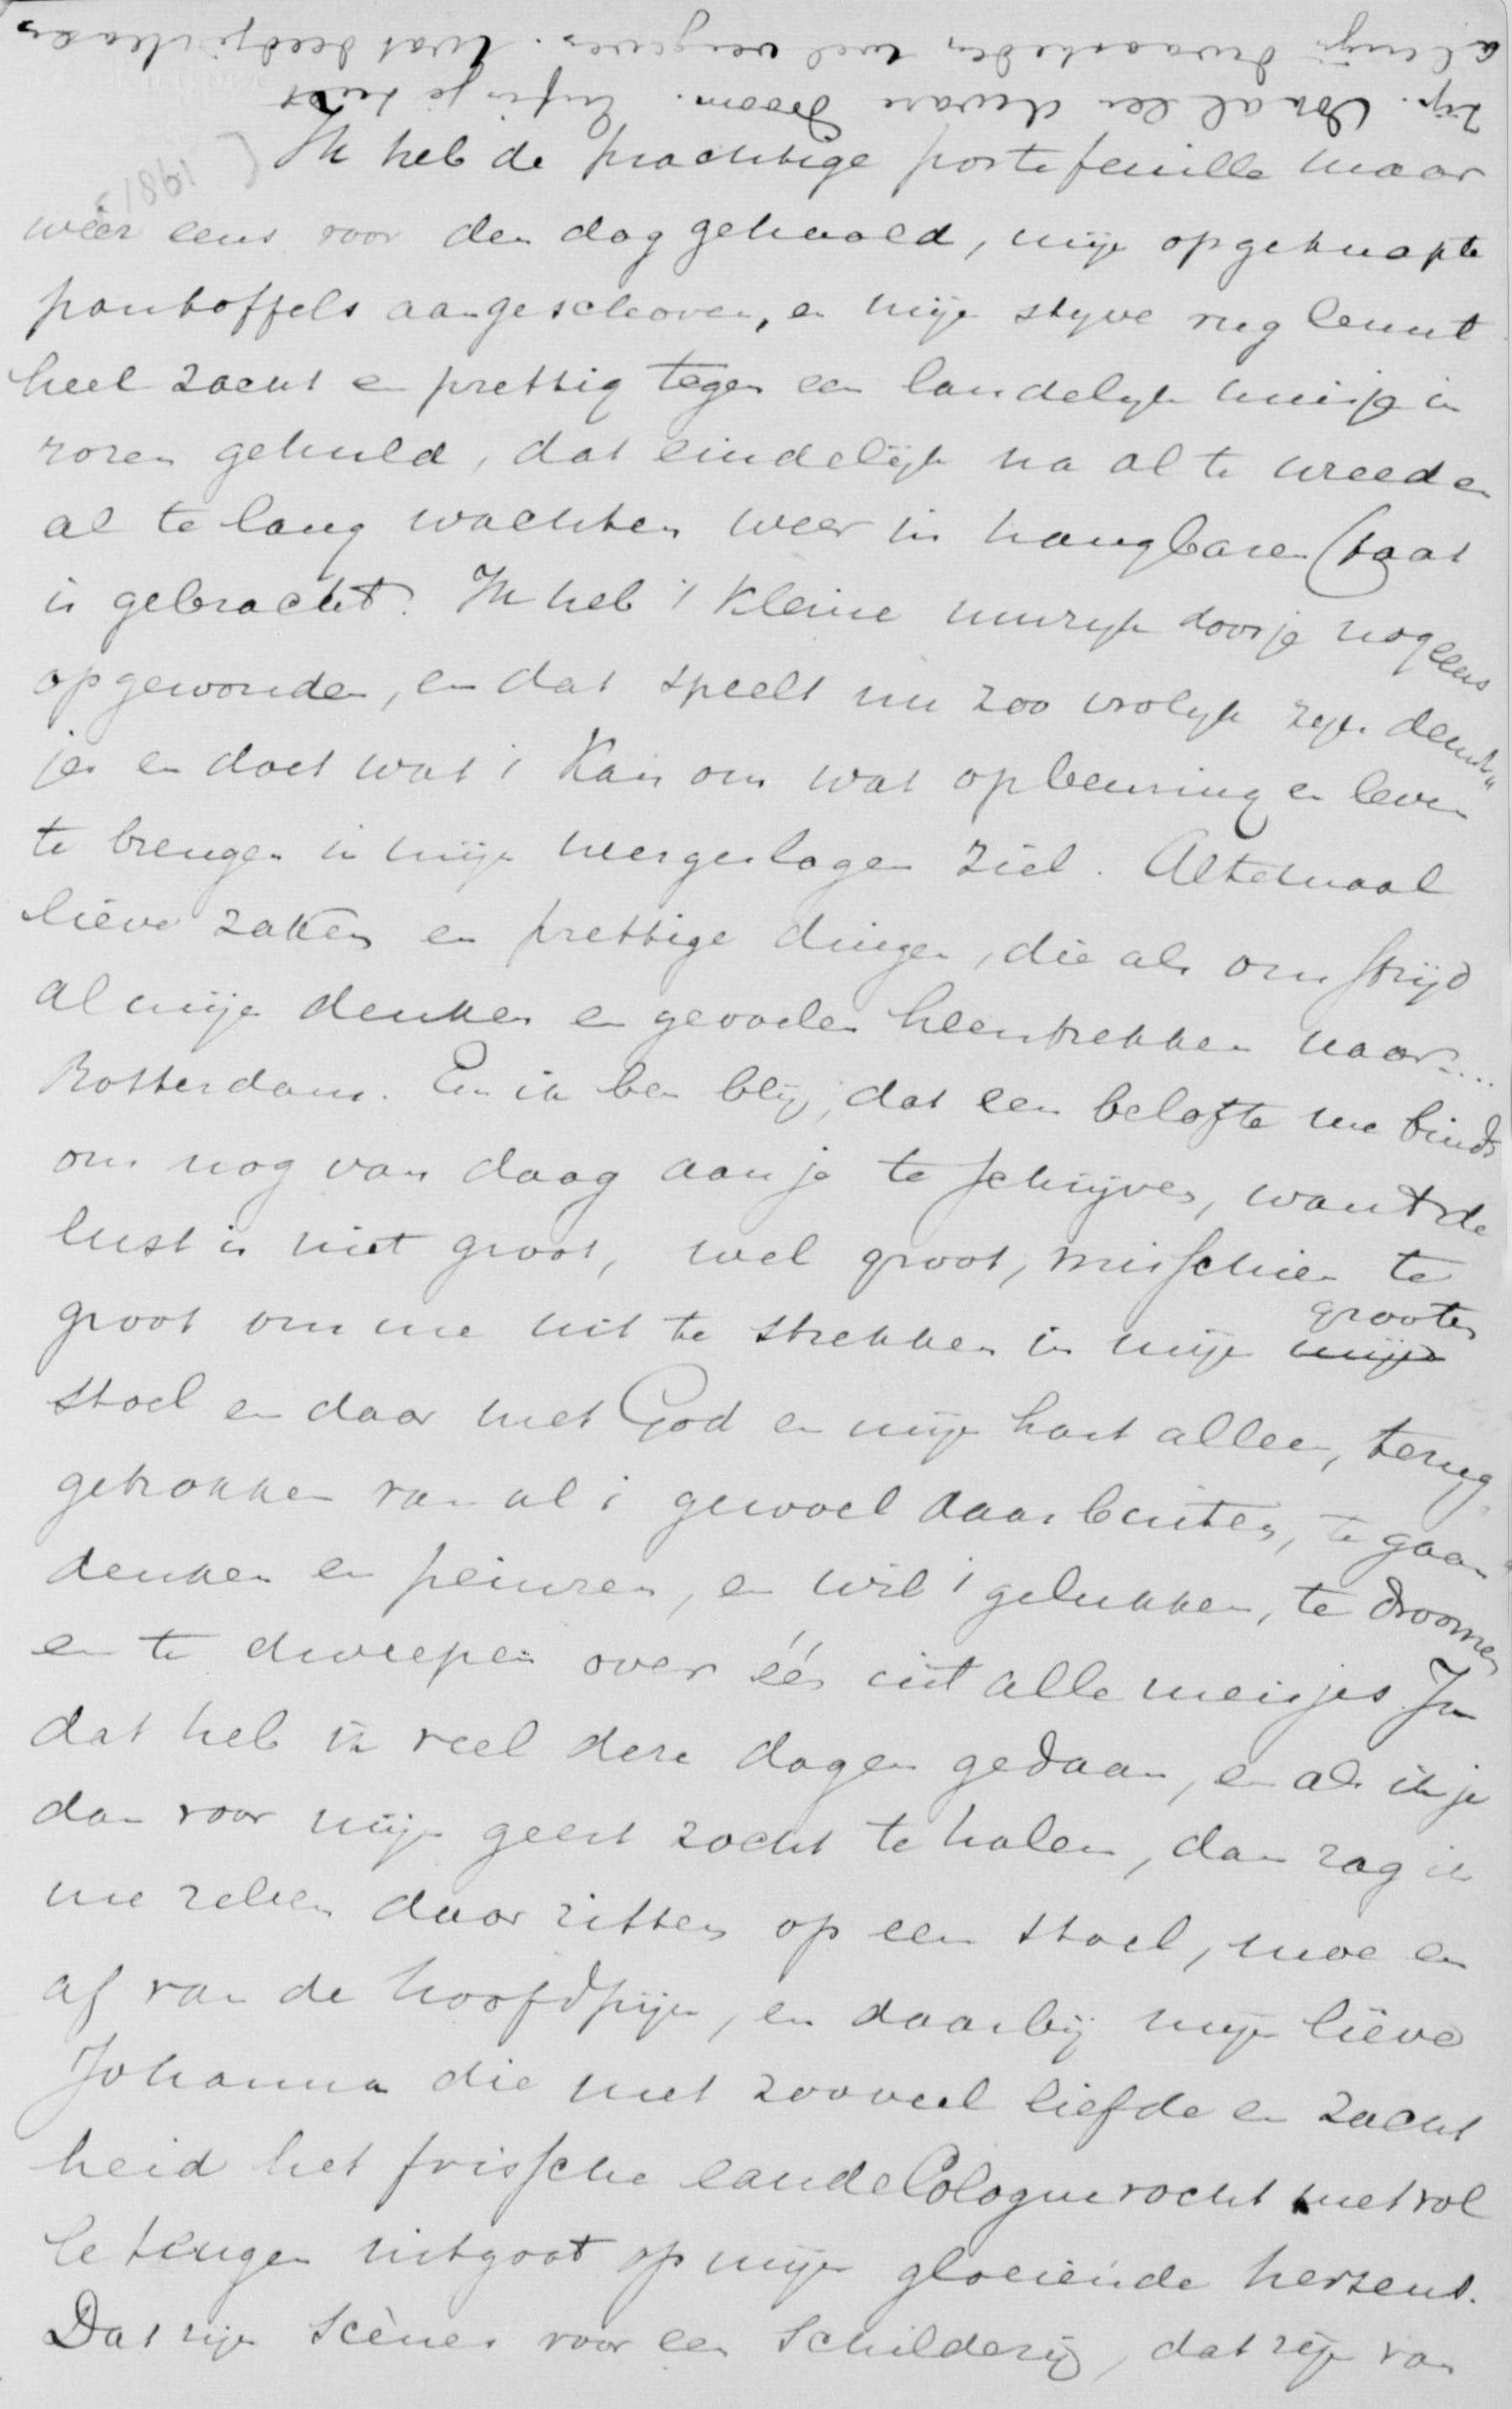 al mijn dwaasheden wel vergeven. Wat deed je
zijn. Dat al een droom. Enfin je zult
[1861?
Ik heb de prachtige portefeuille maar
wéér eens voor den dag gehaald, mijn opgeknapte
pantoffels aangeschoven, en mijn styve rug leunt
heel zacht en prettig tegen een landelyk huisje in
rozen gehuld, dat eindelijk na al te wreed en
al te lang wachten weer in hangbaren staat
is gebracht. Ik heb 't kleine muzyk doosje nog eens
opgewonden, en dat speelt nu zoo vrolyk zyn deunt"
jes en doet wat 't kan om wat opbeuring en leven
te brengen in mijn neergeslagen ziel. Altemaal
lieve zaken en prettige dingen, die als om strijd
al mijn denken en gevoelen heentrekken naar....
Rotterdam. En ik ben blij, dat een belofte me bindt
om nog van daag aan je te schrijven, want de
lust is niet groot, wel groot, misschien te
groot om me uit te strekken in mijn mijn grooten
stoel en daar met God en mijn hart alleen, terug
getrokken van al 't gewoel daar buiten, te gaan
denken en peinzen, en wil 't gelukken, te droomen
en te dweepen over één uit alle meisjes. Ja
dat heb ik veel deze dagen gedaan, en als ik je
dan voor mijn geest zocht te halen, dan zag ik
me zelven daar zitten op een stoel, moe en
af van de hoofdpijn, en daarbij mijn lieve
Johanna die met zooveel liefde en zacht
heid het frissche eau de Cologne vocht met vol
le teugen uitgoot op mijn gloeiende hersens.
Dat zijn Scènes voor een Schilderij, dat zijn van